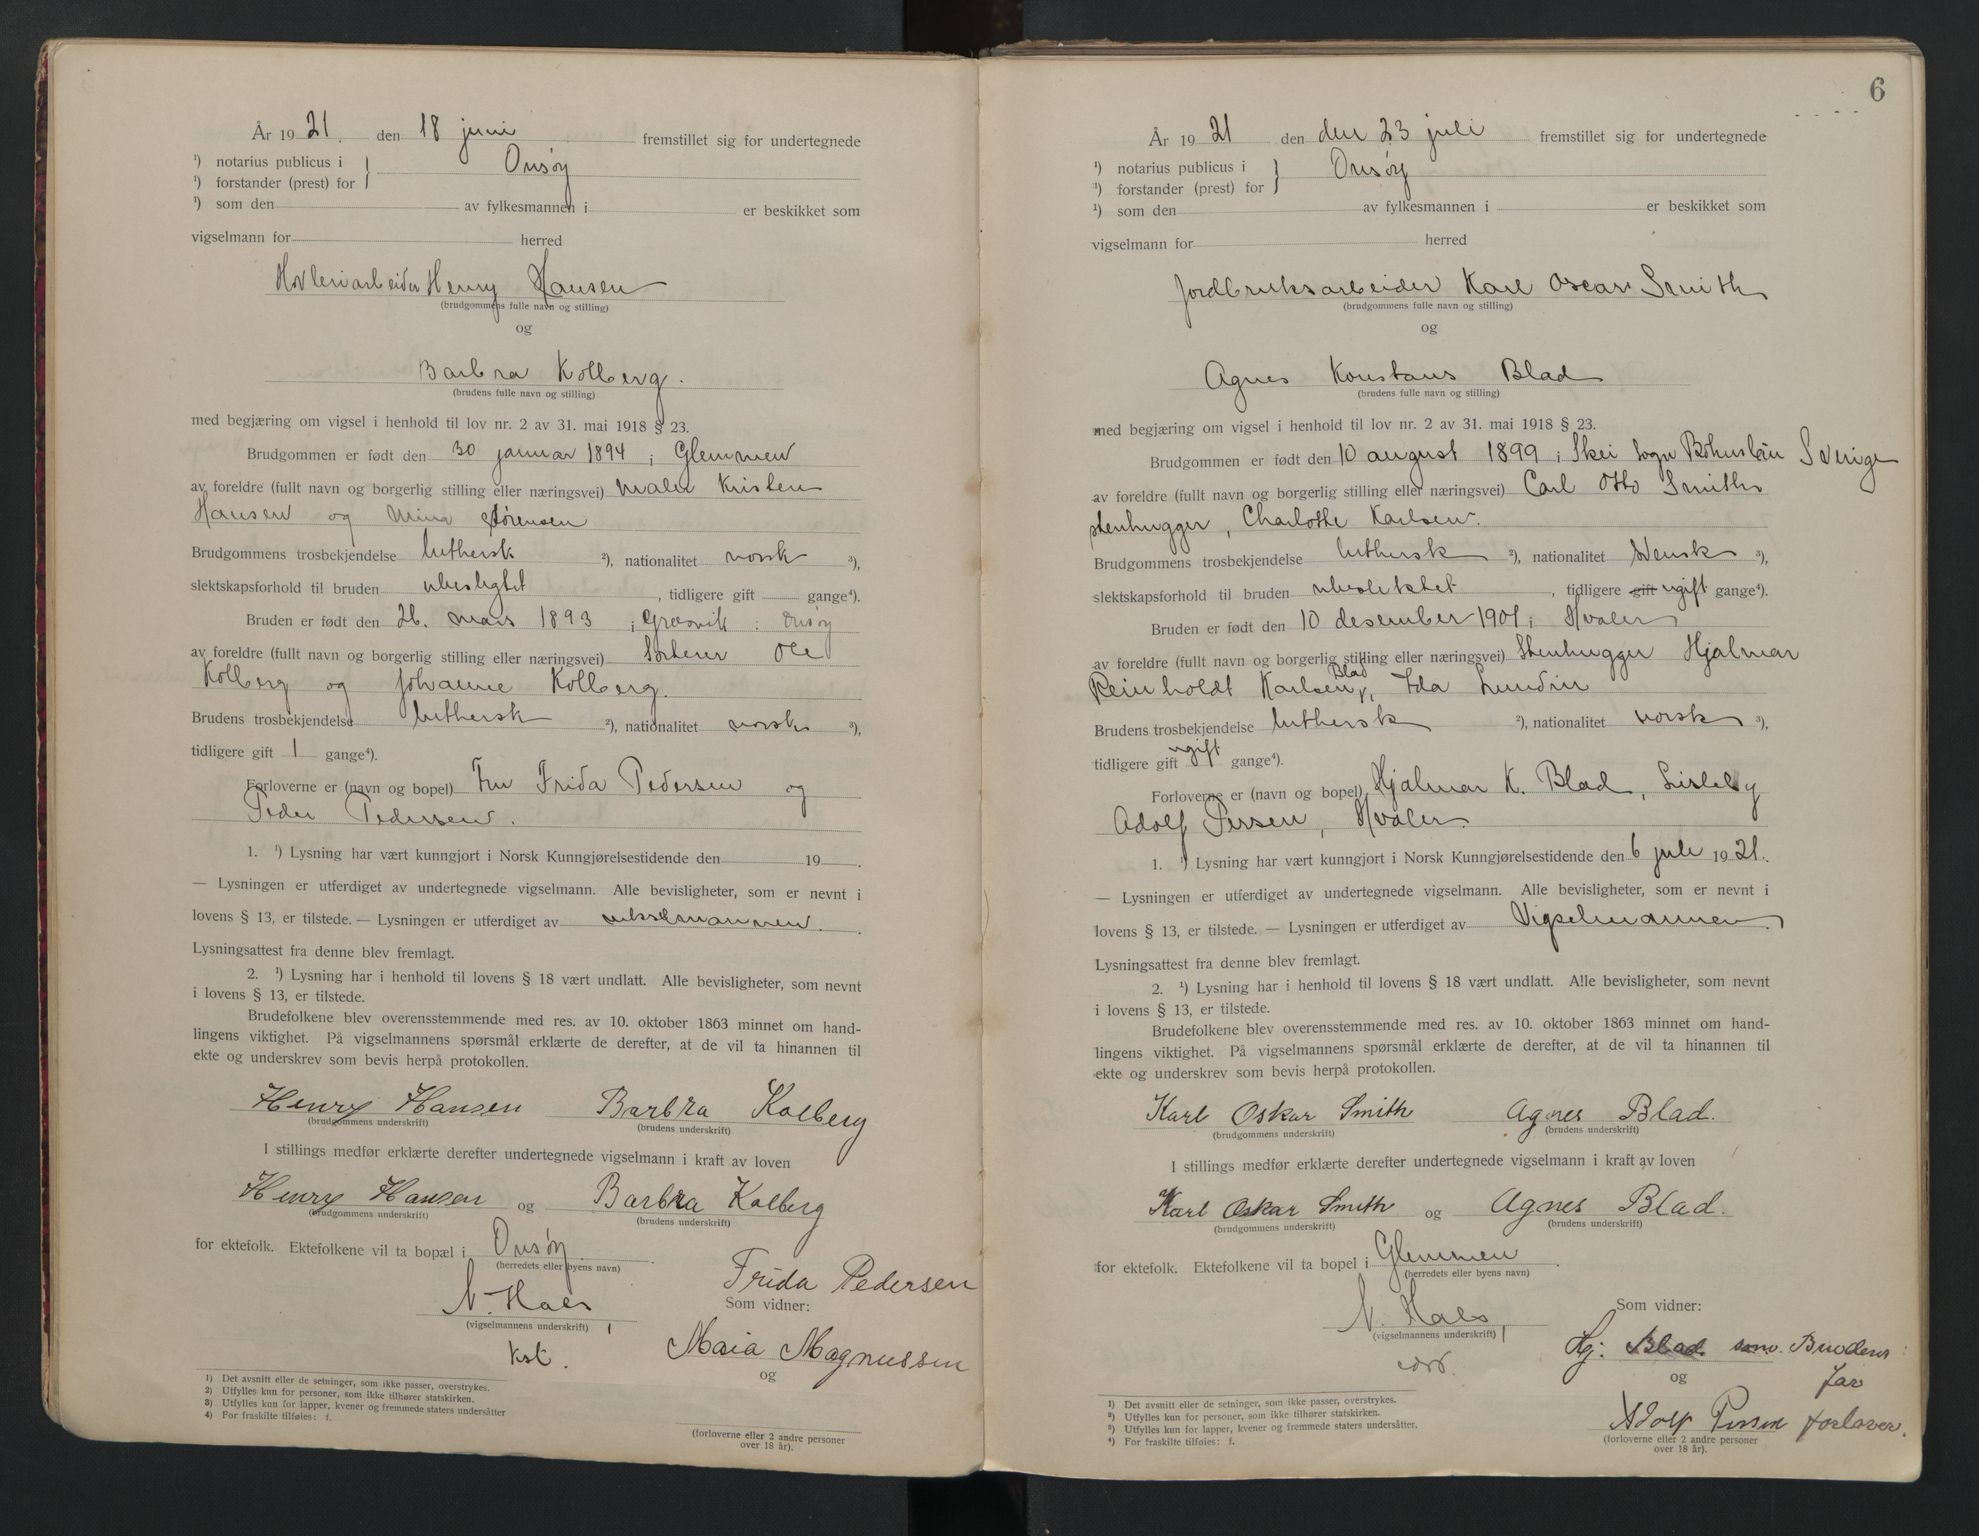 År 1921. den 18 juni fremstillet sig for undertegnede
¹) notarius publicus i
¹) forstander (prest) for } Onsøy
¹) som den av fylkesmannen i er beskikket som
vigselmann for herred
Høvleriarbeider Henry Hansen
(brudgommens fulle navn og stilling)
og
Barbra Kolberg.
(brudens fulle navn og stilling)
med begjæring om vigsel i henhold til lov nr. 2 av 31. mai 1918 § 23.
Brudgommen er født den 30 januar 1894 i Glemmen
av foreldre (fullt navn og borgerlig stilling eller næringsvei) maler Kristen
Hansen og Mina Sørensen
Brudgommens trosbekjendelse luthersk ²), nationalitet norsk ³),
slektskapsforhold til bruden ubeslegtet, tidligere gift gange⁴).
Bruden er født den 26. mars 1893 i Græsvik i Onsøy
av foreldre (fullt navn og borgerlig stilling eller næringsvei) Sorterer Ole
Kolberg og Johanne Kolberg.
Brudens trosbekjendelse luthersk ²), nationalitet norsk ³),
tidligere gift 1 gange⁴).
Forloverne er (navn og bopel) Fru Frida Pedersen og
Peder Pedersen.
1. ¹) Lysning har vært kunngjort i Norsk Kunngjørelsestidende den 19 .
— Lysningen er utferdiget av undertegnede vigselmann. Alle bevisligheter, som er nevnt i
lovens § 13, er tilstede. — Lysningen er utferdiget av
Lysningsattest fra denne blev fremlagt.
2. ¹) Lysning har i henhold til lovens § 18 vært undlatt. Alle bevisligheter, som nevnt
i lovens § 13, er tilstede.
Brudefolkene blev overensstemmende med res. av 10. oktober 1863 minnet om hand-
lingens viktighet. På vigselmannens spørsmål erklærte de derefter, at de vil ta hinannen til
ekte og underskrev som bevis herpå protokollen.
Henry Hansen Barbra Kolberg
(brudgommens underskrift) (brudens underskrift)
I stillings medfør erklærte derefter undertegnede vigselmann i kraft av loven
Henry Hansen og Barbra Kolberg
(brudgommens underskrift) (brudens underskrift)
for ektefolk. Ektefolkene vil ta bopæl i Onsøy.
(herredets eller byens navn)
Frida Pedersen
N. Hals,
Som vidner:
(vigselmannens underskrift)
kst. Maia Magnussen
og
1) Det avsnitt eller de setninger, som ikke passer, overstrykes.
2) Utfylles kun for personer, som ikke tilhører statskirken.
3) Utfylles kun for lapper, kvener og fremmede staters undersåtter
4) For fraskilte tilføies: f.
(forloverne eller 2 andre personer
over 18 år).
6
År 1921 den den 23 juli fremstillet sig for undertegnede
¹) notarius publicus i
¹) forstander (prest) for } Onsøy
¹) som den av fylkesmannen i er beskikket som
vigselmann for herred
Jordbruksarbeider Karl Oscar Smith
(brudgommens fulle navn og stilling)
og
Agnes Konstans Blad
(brudens fulle navn og stilling)
med begjæring om vigsel i henhold til lov nr. 2 av 31. mai 1918 § 23.
Brudgommen er født den 10 august 1899 i Skei sogn Bohuslän Sverige
av foreldre (fullt navn og borgerlig stilling eller næringsvei) Carl Otto Smith
stenhugger, Charlotte Karlsen.
Brudgommens trosbekjendelse luthersk ²), nationalitet svensk ³),
slektskapsforhold til bruden ubeslektet, tidligere gift ugift gange⁴).
Bruden er født den 10 desember 1901 i Hvaler
av foreldre (fullt navn og borgerlig stilling eller næringsvei) Stenhugger Hjalmar
Reinholdt Karlsen Blad, Ida Lundin
Brudens trosbekjendelse luthersk ²), nationalitet norsk ³),
tidligere gift ugift gange⁴).
Forloverne er (navn og bopel) Hjalmar K. Blad, Lisleby
Adolf Persen, Hvaler.
1. ¹) Lysning har vært kunngjort i Norsk Kunngjørelsestidende den 6 juli 1921.
— Lysningen er utferdiget av undertegnede vigselmann. Alle bevisligheter, som er nevnt i
lovens § 13, er tilstede. — Lysningen er utferdiget av Vigselmannen.
Lysningsattest fra denne blev fremlagt.
2. ¹) Lysning har i henhold til lovens § 18 vært undlatt. Alle bevisligheter, som nevnt
i lovens § 13, er tilstede.
Brudefolkene blev overensstemmende med res. av 10. oktober 1863 minnet om hand-
lingens viktighet. På vigselmannens spørsmål erklærte de derefter, at de vil ta hinannen til
ekte og underskrev som bevis herpå protokollen.
Karl Oskar Smith Agnes Blad.
(brudgommens underskrift) (brudens underskrift)
I stillings medfør erklærte derefter undertegnede vigselmann i kraft av loven
Karl Oskar Smith og Agnes Blad.
(brudgommens underskrift) (brudens underskrift)
for ektefolk. Ektefolkene vil ta bopel i Glemmen.
(herredets eller byens navn)
N. Hals,
Som vidner:
(vigselmannens underskrift)
Hj: Blad som Brudens
og far
Adolf Persen forlover.
1) Det avsnitt eller de setninger, som ikke passer, overstrykes.
²) Utfylles kun for personer, som ikke tilhører statskirken.
³) Utfylles kun for lapper, kvener og fremmede staters undersåtter.
⁴) For fraskilte tilføies: f.
(forloverne eller 2 andre personer
over 18 år).